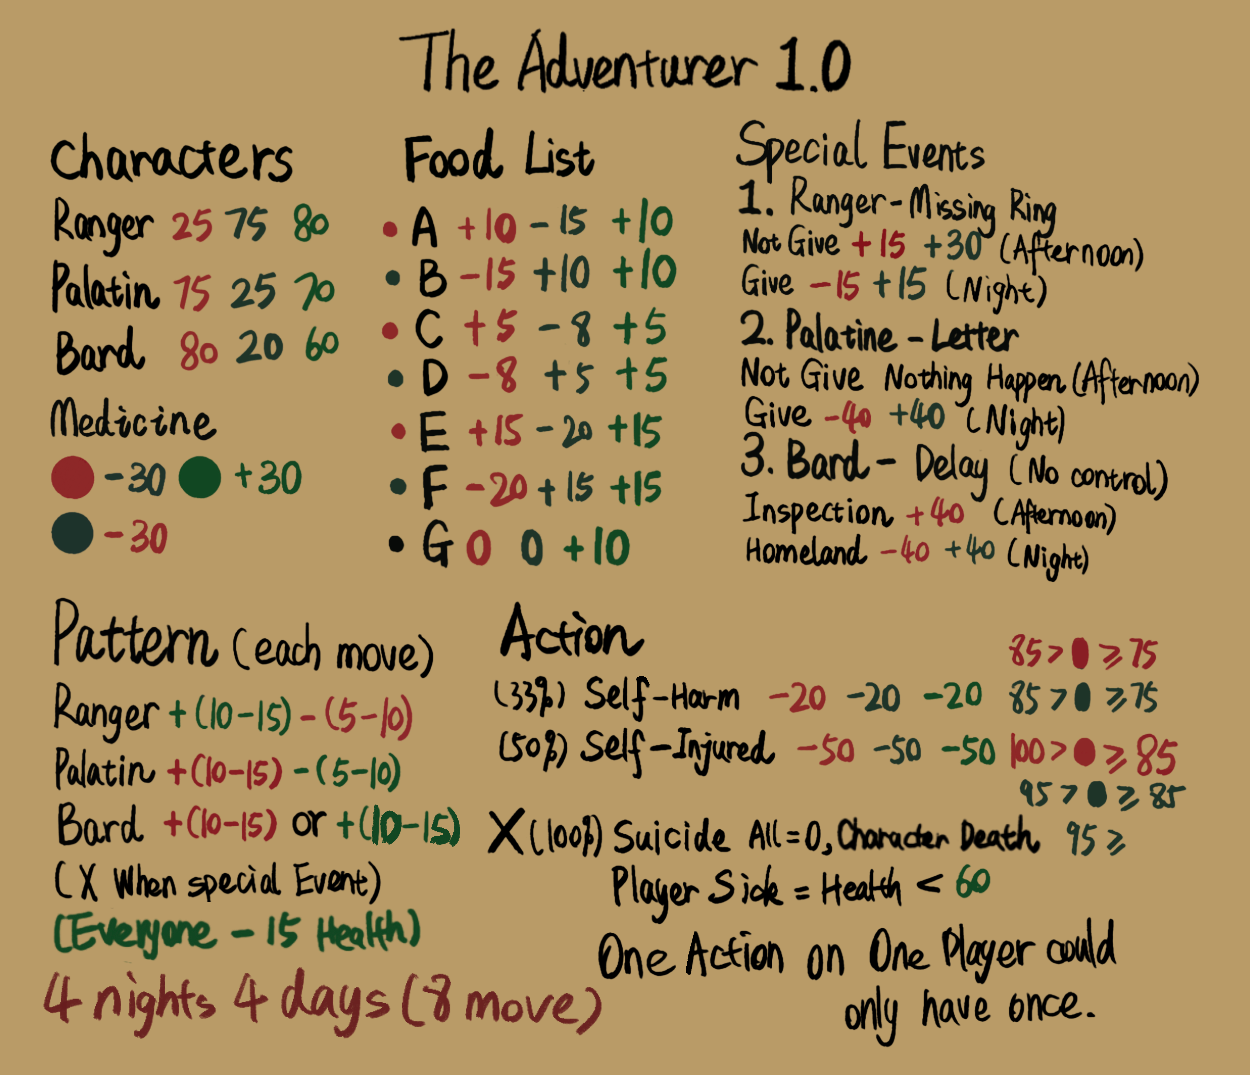 The Adventurer 1.0
Characters
Ranger 25 75 80
Palatin 75 25 70
Bard 80 20 60
Medicine
-30 +30
-30
Food List
A +10 -15 +10
B -15 +10 +10
C +5 -8 +5
D -8 +5 +5
E +15 -20 +15
F -20 +15 +15
G 0 0 +10
Special Events
1. Ranger-Missing Ring
Not Give +15 +30 (Afternoon)
Give -15 +15 (Night)
2. Palatine - Letter
Not Give Nothing Happen (Afternoon)
Give -40 +40 (Night)
3. Bard - Delay (No control)
Inspection +40 (Afternoon)
Homeland -40 +40 (Night)
Pattern (each move)
Ranger +(10-15) -(5-10)
Palatin +(10-15) -(5-10)
Bard +(10-15) or +(10-15)
(X When special Event)
(Everyone - 15 Health)
4 nights 4 days (8 move)
Action
85 > ≥ 75
(33%) Self-Harm -20 -20 -20 85 > ≥ 75
(50%) Self-Injured -50 -50 -50 100 > ≥ 85
95 > ≥ 85
X (100%) Suicide All=0, Character Death 95 ≥
Player Sick = Health < 60
One Action on One Player could
only have once.